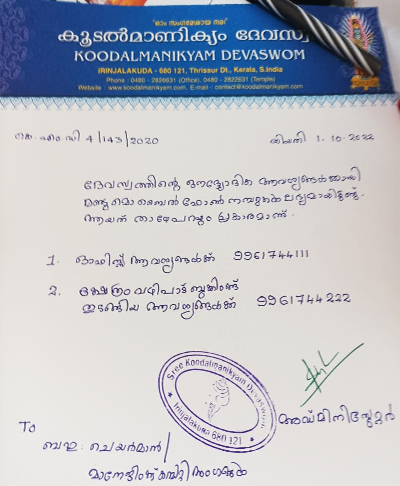 "ഓം സംഗമേശായ നമഃ"
കൂടൽമാണിക്യം ദേവസ്വ
KOODALMANIKYAM DEVASWOM
IRINJALAKUDA - 680 121, Thrissur Dt., Kerala, S.India
Phone : 0480 - 2826631 (Office), 0480 - 2822631 (Temple)
Website : www.koodalmanikyam.com, E-mail : contact@koodalmanikyam.com
നമ്പർ എം ഡി 4/143/2020
തിയതി 1.10.2022
ദേവസ്വത്തിന്റെ ഔദ്യോഗിക ആവശ്യങ്ങൾക്കായി
രണ്ടു മൊബൈൽ ഫോൺ നമ്പറുകൾ ലഭ്യമായിട്ടുണ്ട്.
ആയത് താഴെപറയും പ്രകാരമാണ്.
1. ഓഫീസ് ആവശ്യങ്ങൾക്ക് 9961744111
2. ക്ഷേത്രം വഴിപാട് ബുക്കിംങ്ങ്
തുടങ്ങിയ ആവശ്യങ്ങൾക്ക് 9961744222
Sree Koodalmanikyam Devaswom
Irinjalakuda 680 121
അഡ്മിനിസ്ട്രേറ്റർ
To
ബഹു: ചെയർമാൻ/
മാനേജിംങ്ങ് കമ്മിറ്റി അംഗങ്ങൾ